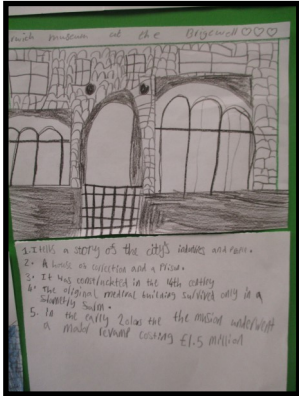 museum at the Brigewell ♡♡♡
1. It tells a story of the city's industies and
2. A house of corection and a Prison.
3. It was constructed in the 14th centry
4. the original medieval building survives only in a
5. In the early 2000s the the musion underwent
a major revamp costing £1.5 million